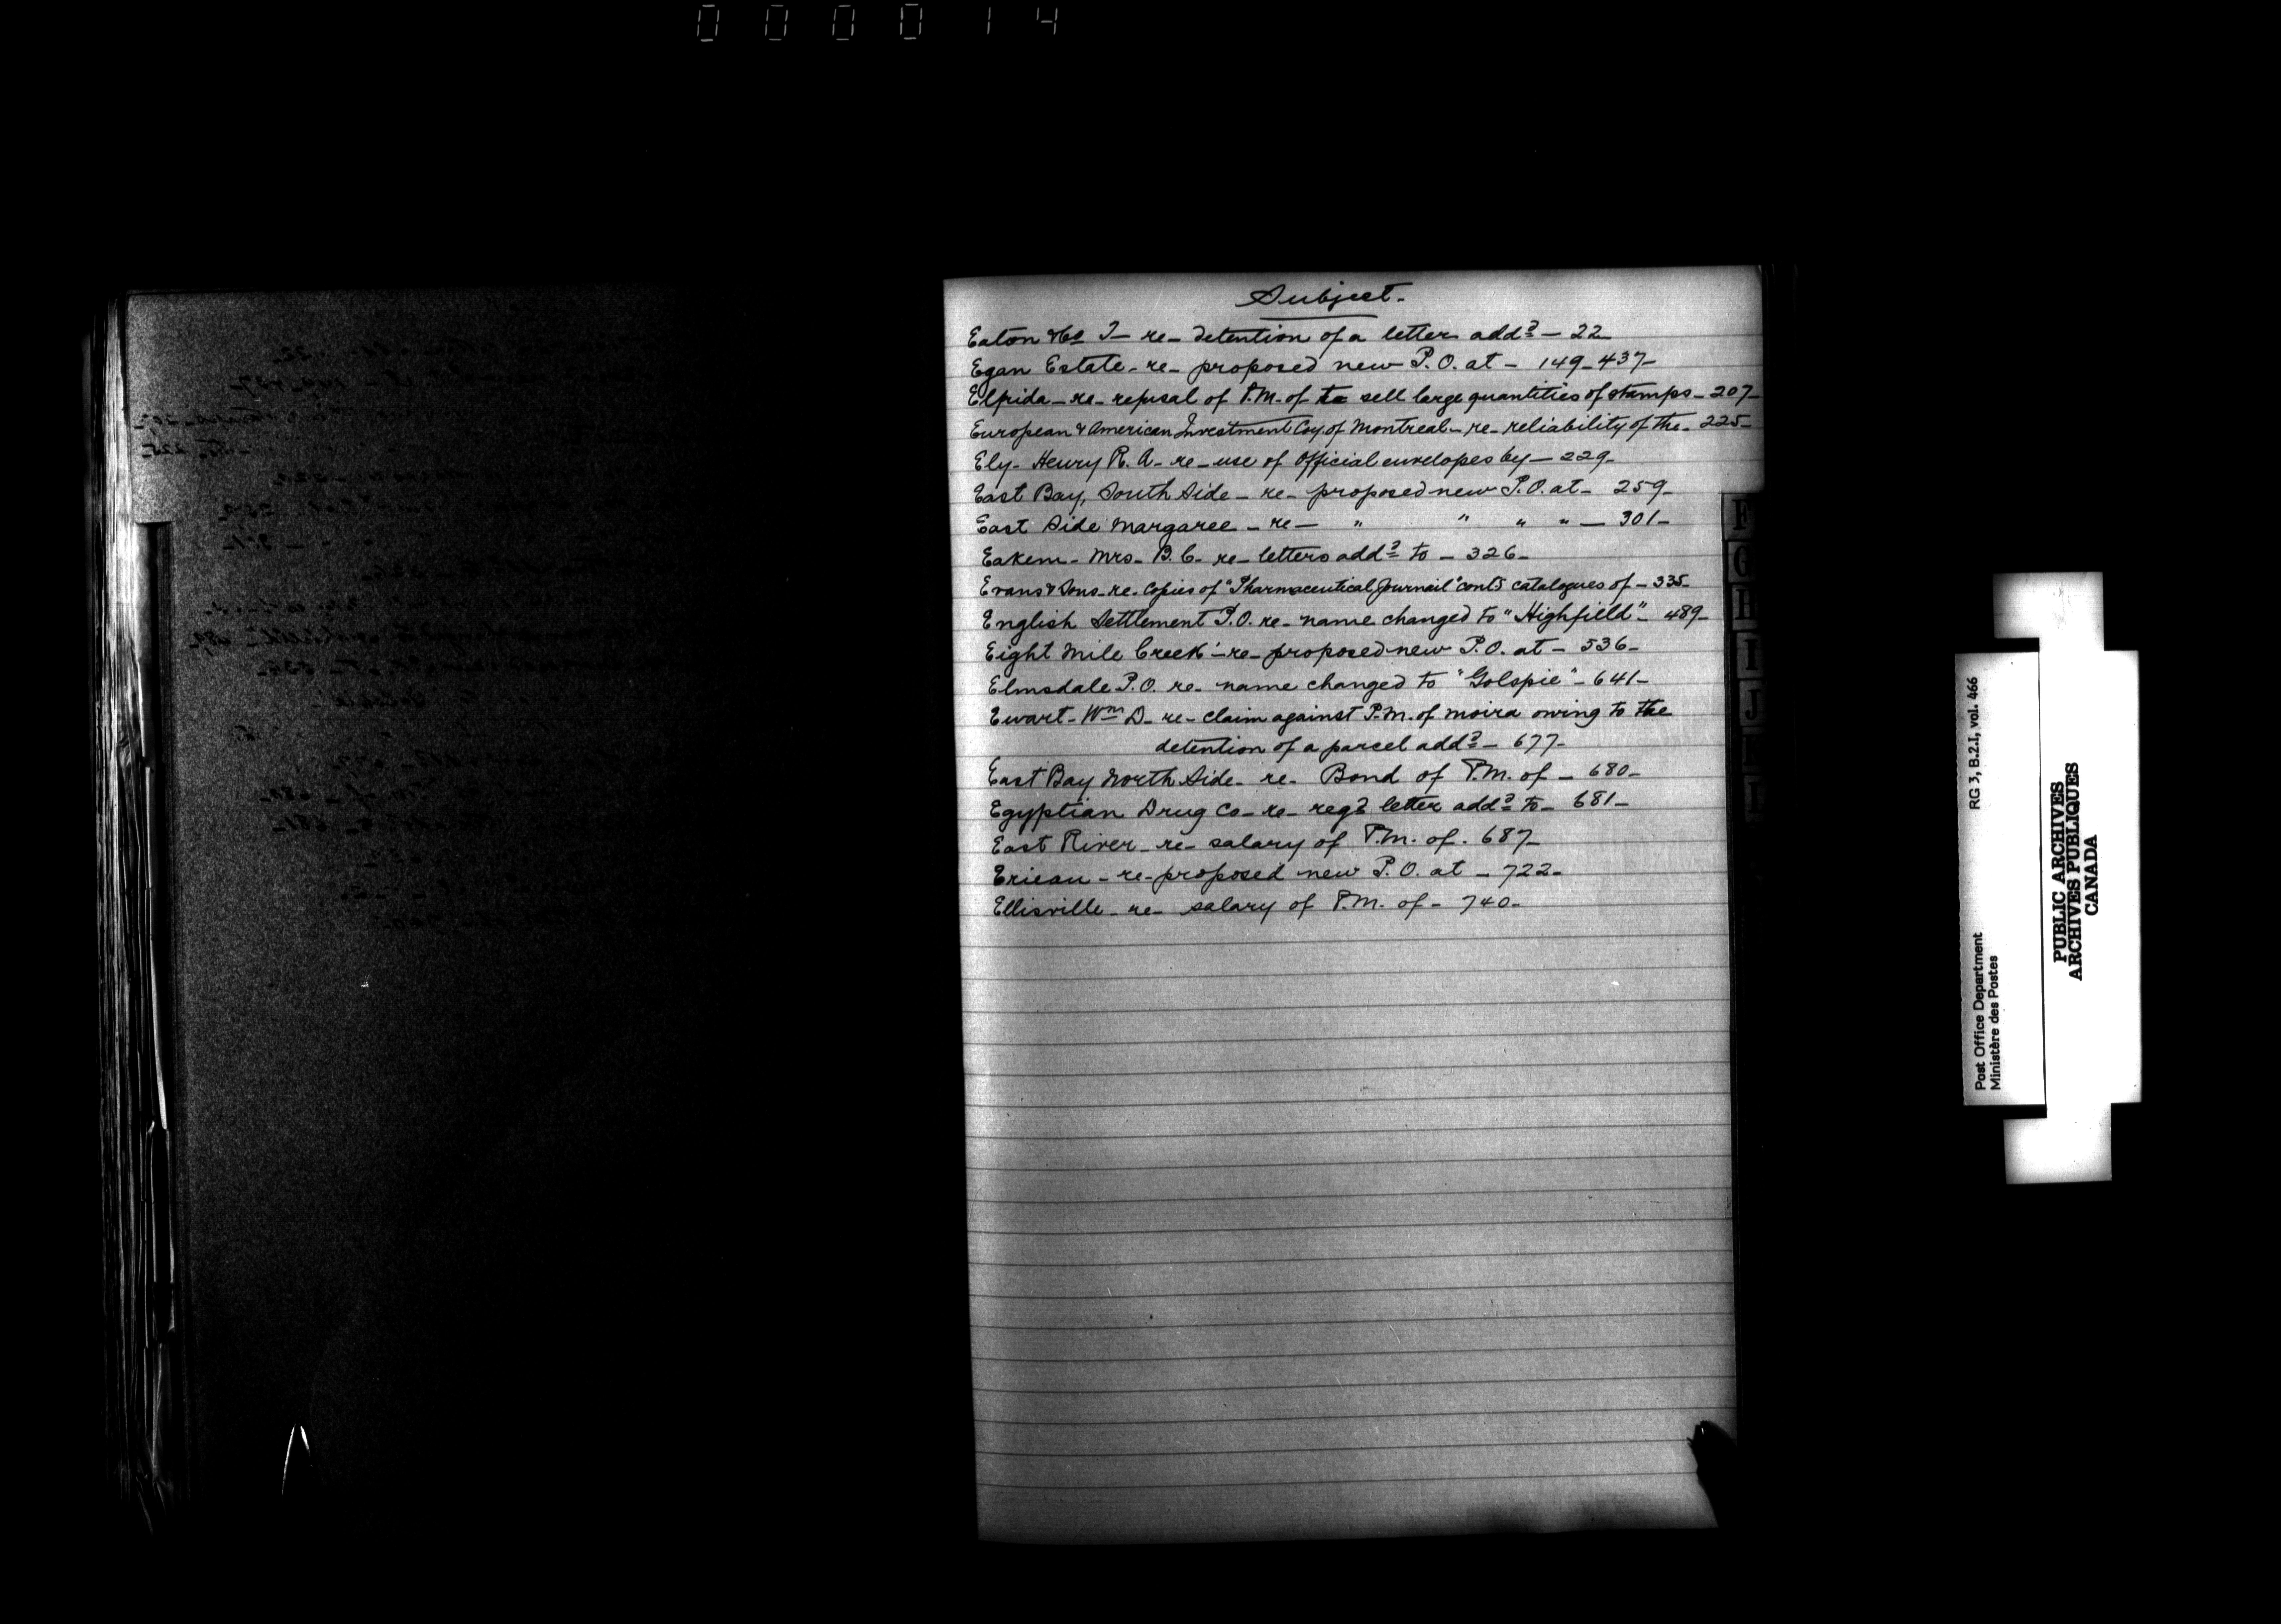 000014
Subject.
Eaton & Co T- re- detention of a letter addd - 22
Egan Estate - re- proposed new P.O. at - 149-437-
Elpida - re- refusal of P.M. of to sell large quantities of stamps - 207-
European & American Investment Coy of Montreal - re- reliability of the - 225-
Ely - Henry R. A. - re - use of Official envelopes by - 229-
East Bay, South Side - re- proposed new P.O. at - 259-
East Side Margaree - re - " " " " - 301-
Eakem - Mrs - B. C. re- letters addd to - 326-
Evans & Sons - re. Copies of "Pharmaceutical Journal" contg catalogues of - 335-
English Settlement P.O. re- name changed to "Highfield" - 489-
Eight Mile Creek - re- proposed new P.O. at - 536-
Elmsdale P.O. re- name changed to "Golspie" - 641-
Ewart - Wm D - re- claim against P.M. of Moira owing to the
detention of a parcel addd - 677-
East Bay North Side - re- Bond of P.M. of - 680-
Egyptian Drug Co - re- regd letter addd to - 681-
East River - re- salary of P.M. of - 687-
Erieau - re- proposed new P.O. at - 722-
Ellisville - re- salary of P.M. of - 740-
G
H
I
J
Post Office Department
Ministère des Postes
RG 3, B.2.I, vol. 466
PUBLIC ARCHIVES
ARCHIVES PUBLIQUES
CANADA